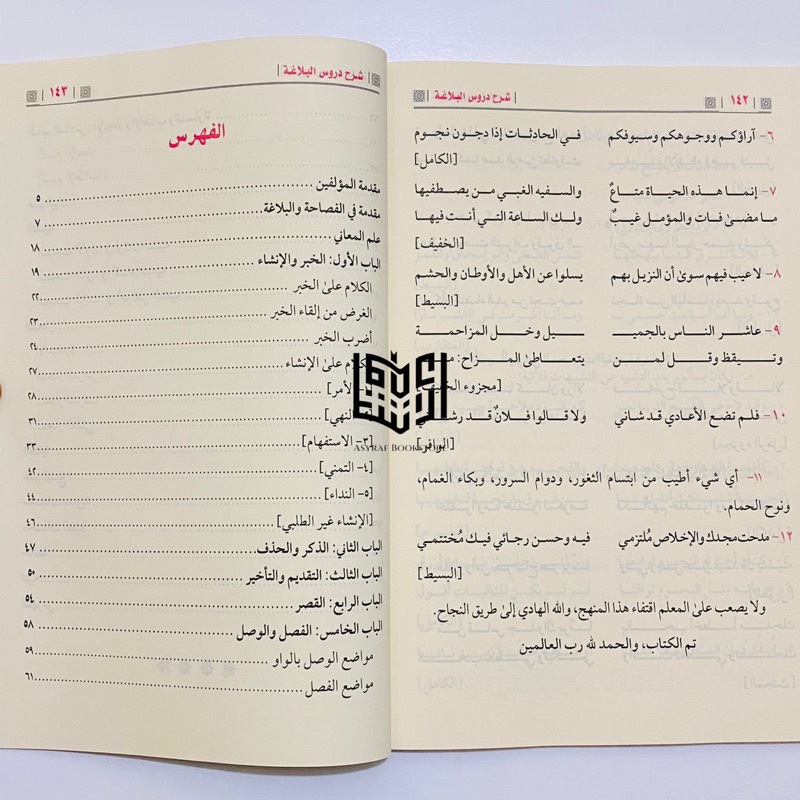 ١٤٢ | شرح دروس البلاغة |
٦- آراؤكم ووجوهكم وسيوفكم في الحادثات إذا دجون نجوم
[الكامل]
٧- إنما هذه الحياة متاعٌ والسفيه الغبي من يصطفيها
ما مضىٰ فات والمؤمل غيبٌ ولك الساعة التي أنت فيها
[الخفيف]
٨- لا عيب فيهم سوىٰ أن النزيل بهم يسلوا عن الأهل والأوطان والحشم
[البسيط]
٩- عاشر الناس بالجميـ ـيل وخل المزاحمة
وتيقظ وقل لمن يتعاطىٰ المزاح:
[مجزوء الخفيف]
١٠- فلم تضع الأعادي قد شاني ولا قالوا فلانٌ قد
[الوافر]
١١- أي شيء أطيب من ابتسام الثغور، ودوام السرور، وبكاء الغمام،
ونوح الحمام.
١٢- مدحت مجدك والإخلاص مُلتزمي فيه وحسن رجائي فيك مُختتمي
[البسيط]
ولا يصعب علىٰ المعلم اقتفاء هذا المنهج، والله الهادي إلىٰ طريق النجاح.
تم الكتاب، والحمد لله رب العالمين
| شرح دروس البلاغة | ١٤٣ |
الفهرس
مقدمة المؤلفين ٥
مقدمة في الفصاحة والبلاغة ٧
علم المعاني ١٨
الباب الأول: الخبر والإنشاء ١٩
الكلام علىٰ الخبر ٢٢
الغرض من إلقاء الخبر ٢٣
أضرب الخبر ٢٤
الكلام علىٰ الإنشاء ٢٧
[١- الأمر] ٢٨
[٢- النهي] ٣١
[٣- الاستفهام] ٣٣
[٤- التمني] ٤٢
[٥- النداء] ٤٤
[الإنشاء غير الطلبي] ٤٦
الباب الثاني: الذكر والحذف ٤٧
الباب الثالث: التقديم والتأخير ٥٠
الباب الرابع: القصر ٥٤
الباب الخامس: الفصل والوصل ٥٨
مواضع الوصل بالواو ٥٩
مواضع الفصل ٦١
ASYRAF BOOKSTORE